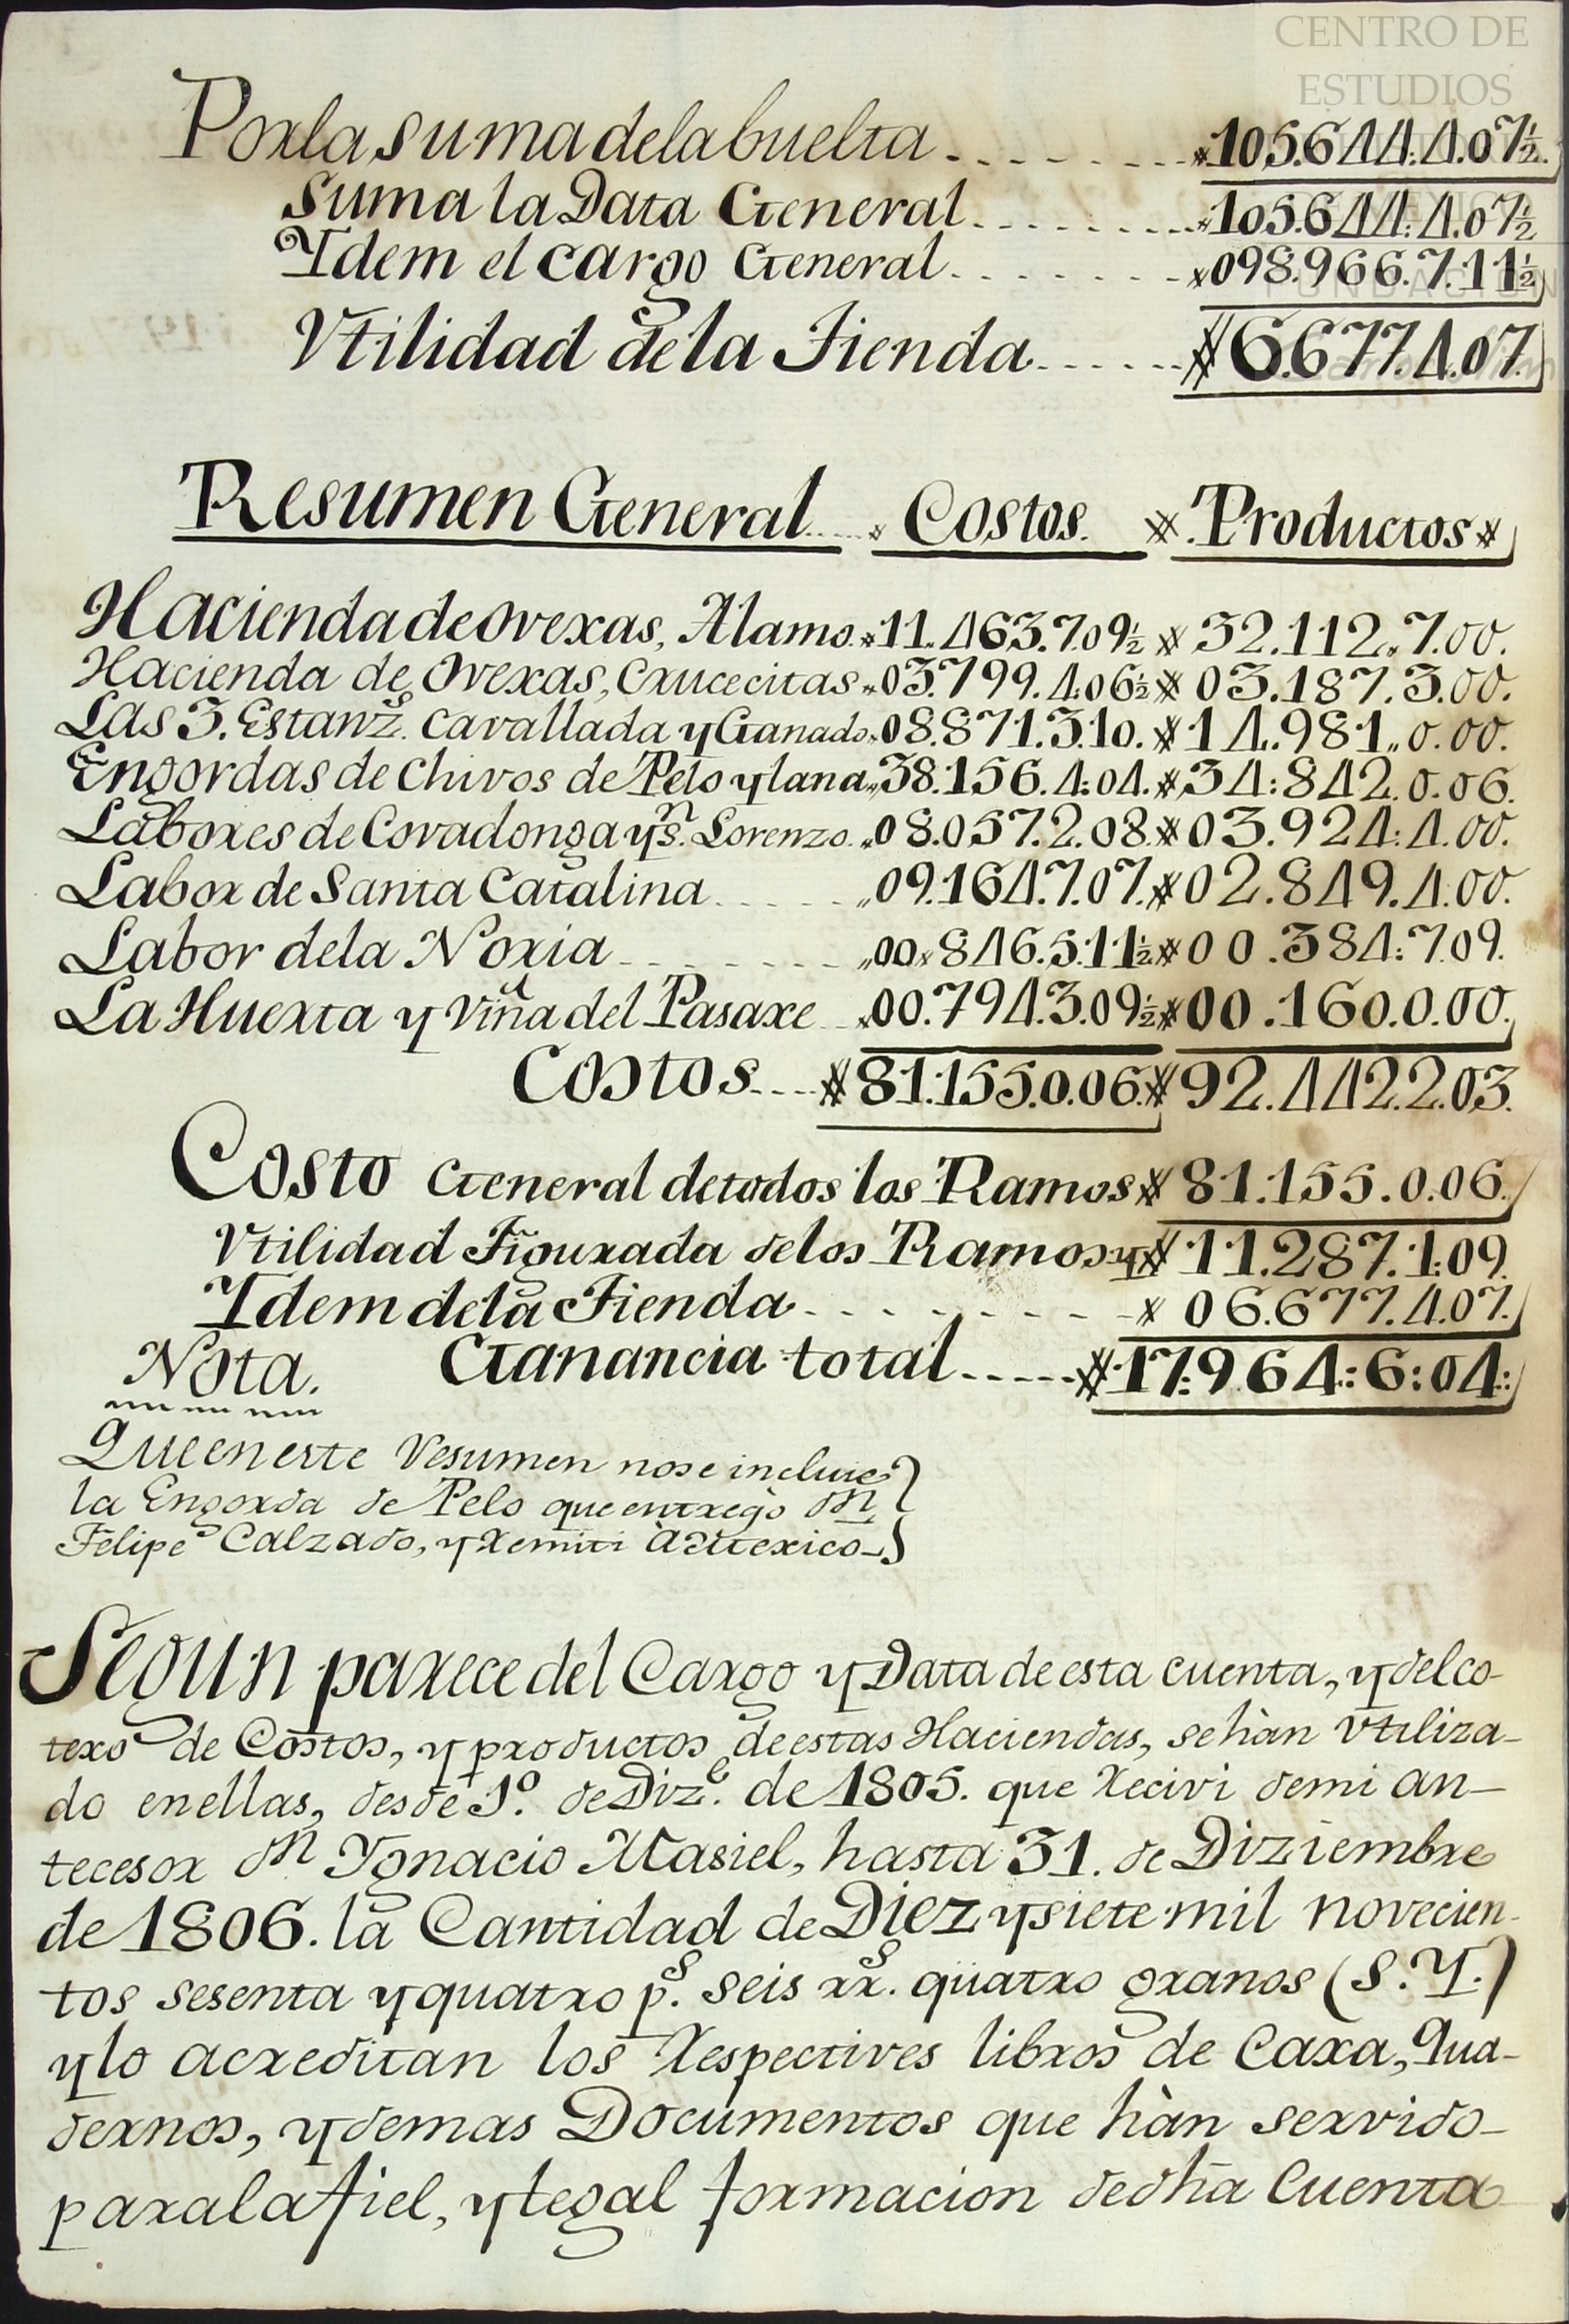 CENTRO DE
ESTUDIOS
Por la suma de la buelta . . . . . . . 105.644.4.07½
Suma la Data General . . . . . . . 105.644.4.07½
Ydem el cargo General . . . . . . . 098.966.7.11½
Vtilidad de la Tienda . . . . . . 6.677.4.07.
Resumen General Costos. Productos
Hacienda de Ovexas, Alamo. 11.463.7.09½ 32.112.7.00.
Hacienda de Ovexas, Crucecitas 03.799.4.06½ 03.187.3.00.
Las 3. Estanz.s Cavallada y Ganado 08.871.3.10. 14.981.0.00.
Engordas de Chivos de Pelo y lana 38.156.4.04. 34.842.0.06.
Labores de Covadonga y S.n Lorenzo. 08.057.2.08. 03.924.4.00.
Labor de Santa Catalina . . . . . 09.164.7.07. 02.849.4.00.
Labor de la Noria . . . . . . . 00.846.5.11½ 00.384.7.09.
La Huerta y Viña del Pasaxe 00.794.3.09½ 00.160.0.00.
Costos . . . . 81.155.0.06. 92.442.2.03.
Costo General de todos los Ramos 81.155.0.06.
Vtilidad Figurada de los Ramos y 11.287.1.09.
Ydem de la Tienda . . . . . . . . 06.677.4.07.
Nota. Ganancia total . . . . . 17.964:6:04:
Que en este Resumen no se incluie
la Engorda de Pelo que entregò Dn
Felipe Calzado, y remiti à Mexico
Segun parece del Cargo y Data de esta cuenta, y del co-
texo de Costos, y productos de estas Haciendas, se hàn vtiliza-
do en ellas, desde 1º. de Diz.e de 1805. que recivi de mi an-
tecesor Dn Ygnacio Masiel, hasta 31. de Diziembre
de 1806. la Cantidad de Diez y siete mil novecien-
tos sesenta y quatro p.s seis rr.s quatro granos (S.Y.)
y lo acreditan los respectives libros de Caxa, Qua-
dernos, y demas Documentos que hàn servido
para la fiel, y legal formacion de dha Cuenta